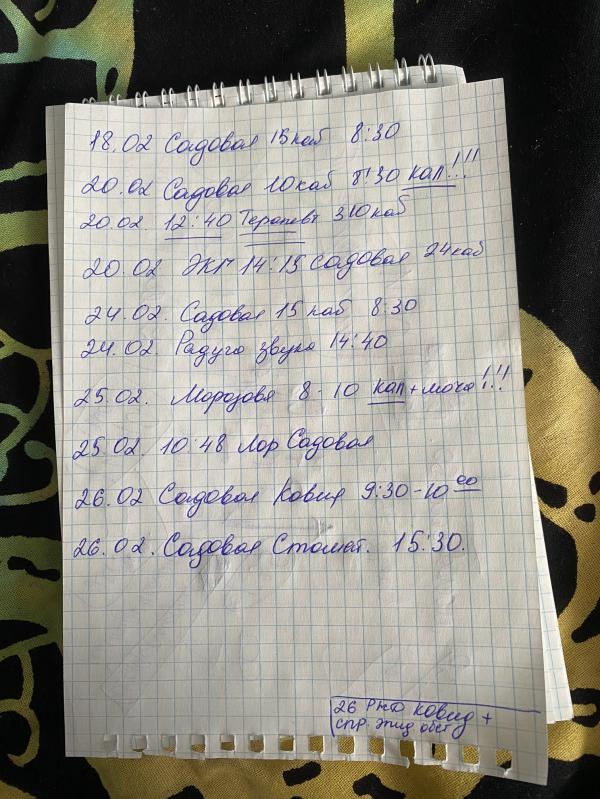 18.02 Садовая 15 каб 8:30
20.02 Садовая 10 каб 8:30 кал!!!
20.02. 12:40 Терапевт 310 каб
20.02 ЭКГ 14:15 Садовая 24 каб
24.02. Садовая 15 каб 8:30
24.02. Радуга звука 14:40
25.02. Морозова 8-10 кал + моча!!!
25.02. 10:48 Лор Садовая
26.02 Садовая Ковид 9:30-10 00
26.02. Садовая Стомат. 15:30.
26 ковид +
спр. эпид обст